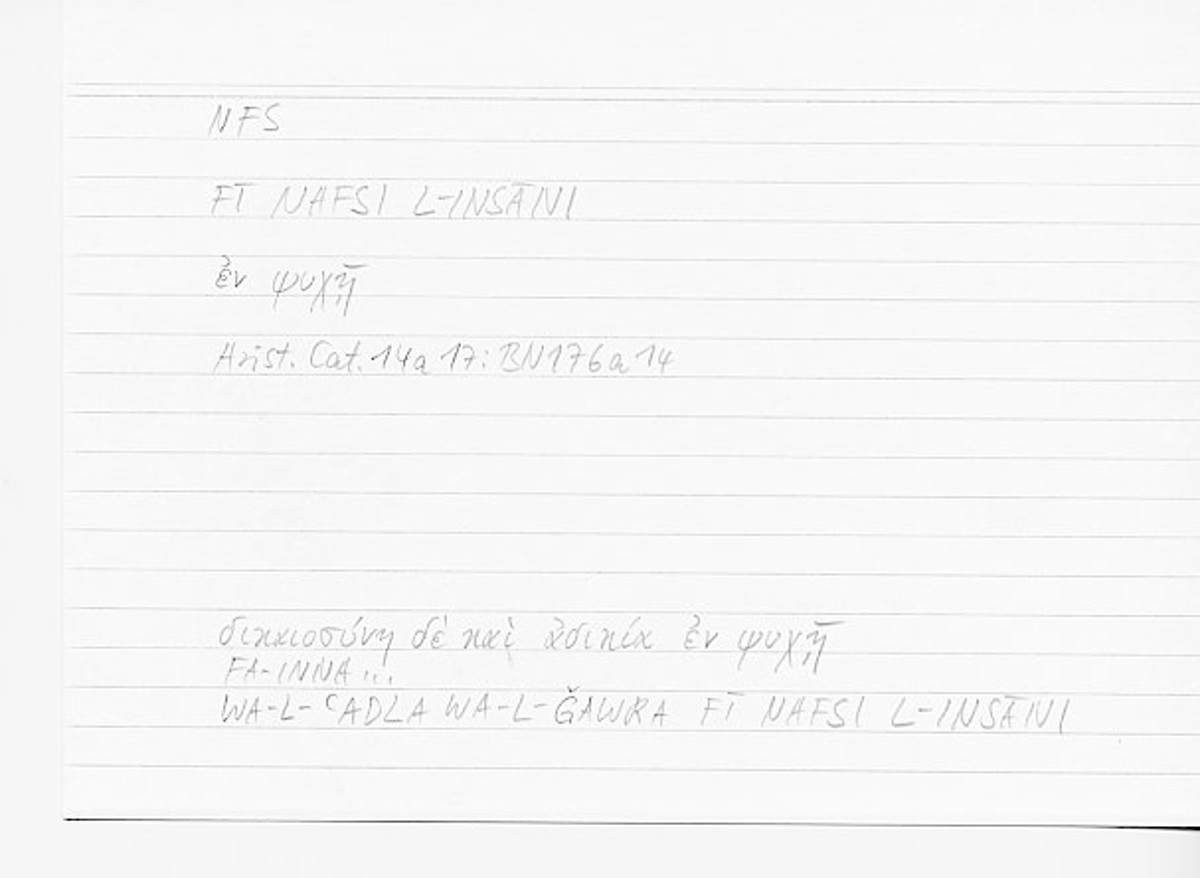 NFS
FĪ NAFSI L-INSĀNI
ἐν ψυχῇ
Arist. Cat. 14a 17: BN176a 14
δικαιοσύνη δὲ καὶ ἀδικία ἐν ψυχῇ
FA-INNA...
WA-L-ʿADLA WA-L-ǦAWRA FĪ NAFSI L-INSĀNI